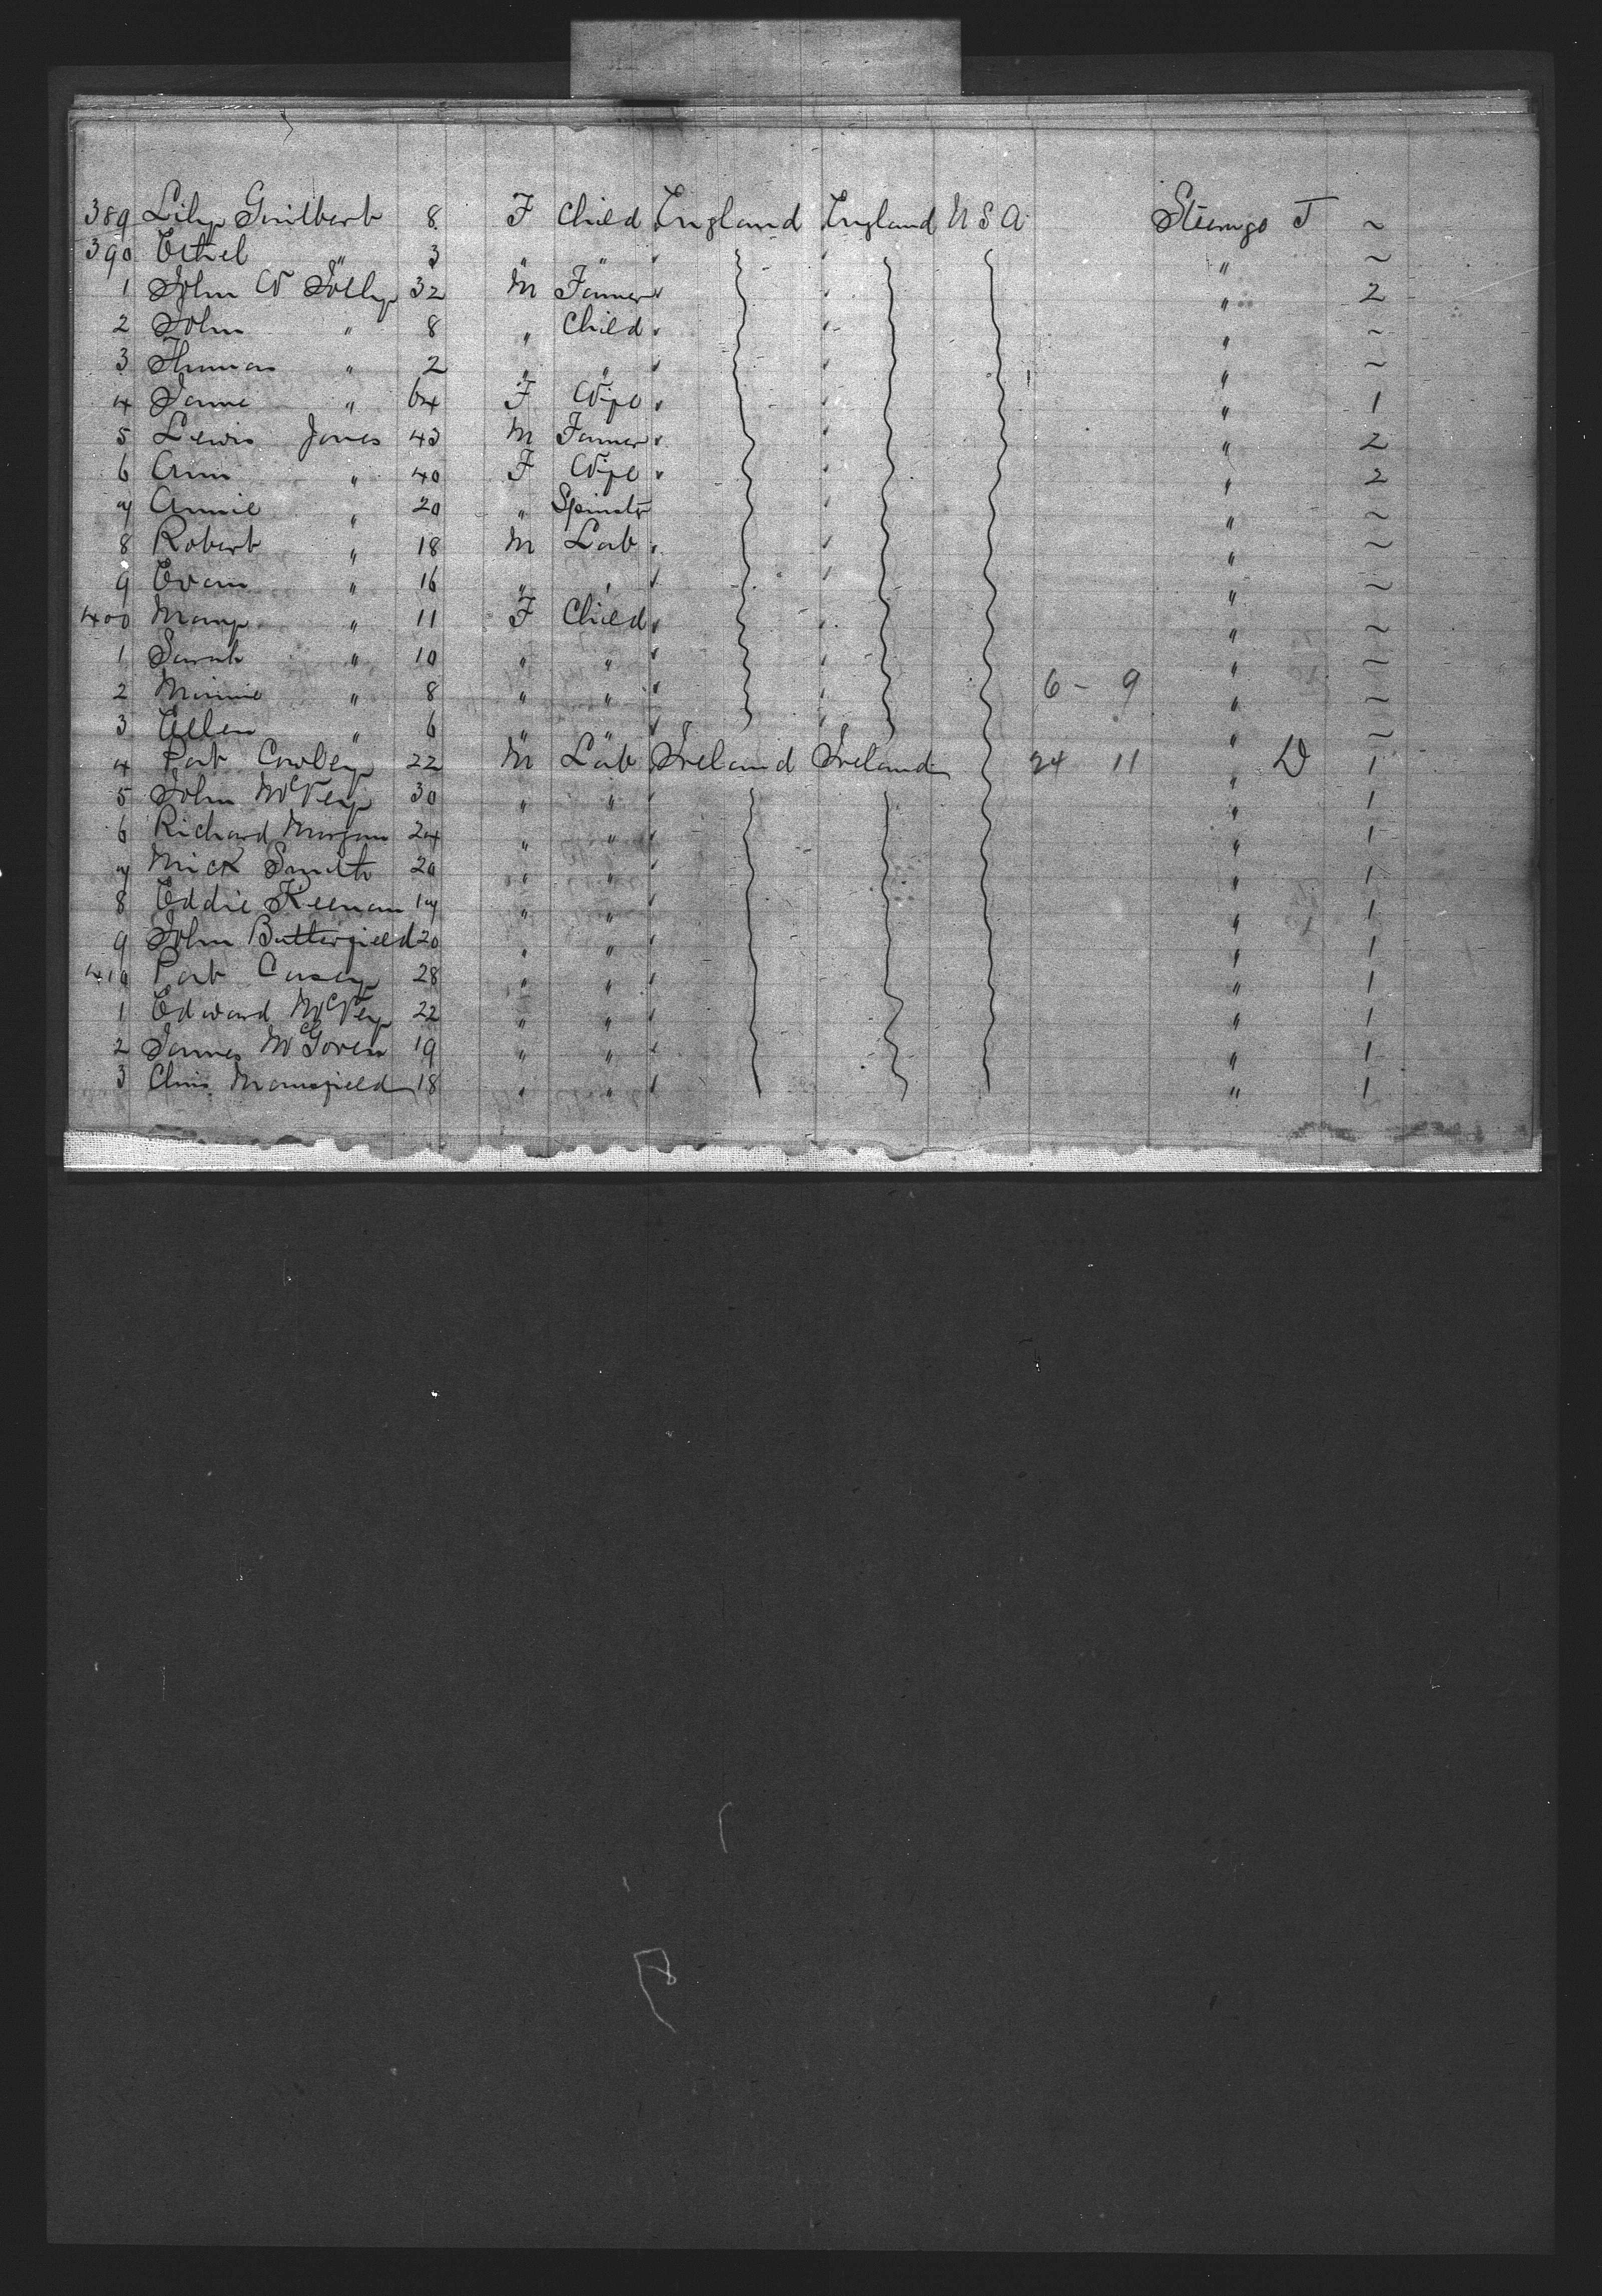 389 Lily Guilbert 8 F Child England England U S A Steerage T ~
390 Ethel " 3 " " ~
1 John W Jolly 32 M Farmer " 2
2 John " 8 " Child " ~
3 Thomas " 2 " " " ~
4 Jane " 64 F Wife " 1
5 Lewis Jones 43 M Farmer " 2
6 Ann " 40 F Wife " 2
7 Annie " 20 " Spinstr " ~
8 Robert " 18 M Lab " ~
9 Evan " 16 " " " ~
400 Mary " 11 F Child " ~
1 Sarah " 10 " " " ~
2 Minnie " 8 " " 6 - 9 " ~
3 Ellen " 6 " " " ~
4 Pat Cowley 22 M Lab Ireland Ireland 24 11 " D 1
5 John McVey 30 " " " 1
6 Richard Morgan 24 " " " 1
7 Mick Smith 20 " " " 1
8 Eddie Keenan 17 " " " 1
9 John Butterfield 20 " " " 1
410 Pat Casey 28 " " " 1
1 Edward McVey 22 " " " 1
2 James McGoven 19 " " " 1
3 Chris Mansfield 18 " " " 1